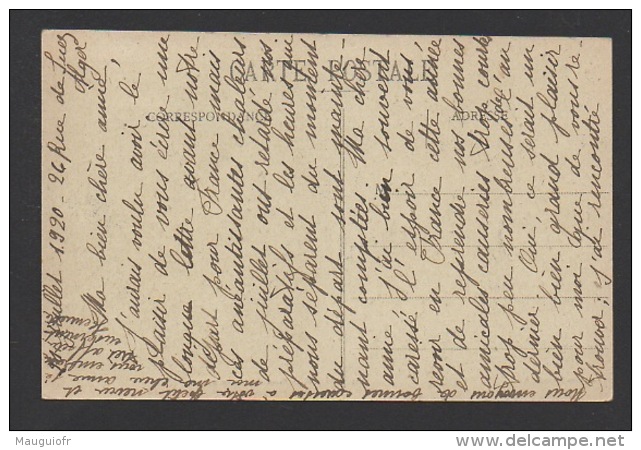 CARTE POSTALE
CORRESPONDANCE
ADRESSE
juillet 1920 - 26 Rue de
Alger
Ma bien chère amie,
J'aurais voulu avoir le
plaisir de vous écrire une
longue lettre avant notre
départ pour France mais
ces anéantissantes chaleurs
de juillet ont retardé nos
préparatifs et les heures qui
nous séparent du moment
du départ sont main-
tenant comptées. Ma chère
amie j'ai bien souvent
caressé l'espoir de vous
revoir en France cette année
et de reprendre nos bonnes
amicales causeries trop courtes
trop peu nombreuses l'an
dernier. Oui ce serait un
bien bien grand plaisir
pour moi que de vous re-
trouver; j'ai rencontré
Nous envoyons de bonnes
à votre petit
ma chère amie
Mauguiofr